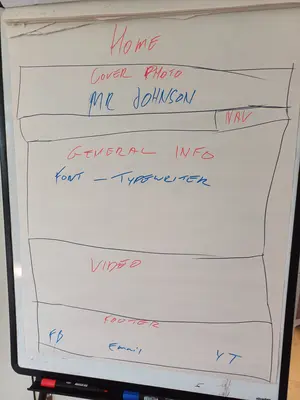 HOME
COVER PHOTO
MR JOHNSON
NAV
GENERAL INFO
FONT - TYPEWRITER
VIDEO
FOOTER
FB
Email
YT